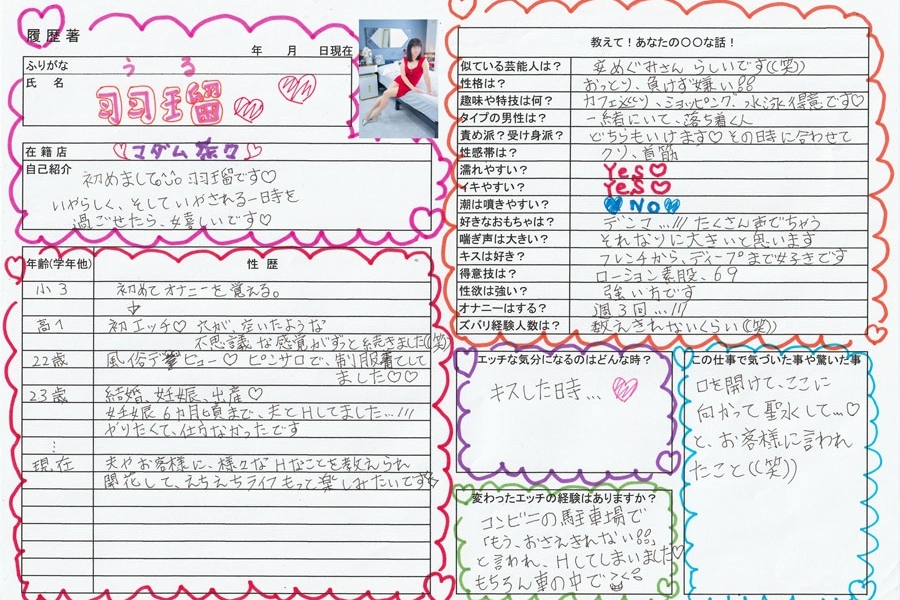 履歴著
年 月 日現在
ふりがな
うる
氏 名
羽瑠
在籍店
マダム奈々
自己紹介
初めまして 羽瑠です♡
いやらしく、そしていやされる一時を
過ごせたら、嬉しいです♡
年齢(学年他) 性歴
22歳 風俗デビュー♡ ピンサロで、制服着てして
ました♡♡
23歳 結婚、妊娠、出産♡
妊娠6カ月頃まで、夫とHしてました…///
やりたくて、仕方なかったです
現在 夫やお客様に、様々なHなことを教えられ
開花して、えちえちライフもっと楽しみたいです
教えて!あなたの〇〇な話!
似ている芸能人は? 安めぐみさんらしいです((笑))
性格は? おっとり、負けず嫌い
趣味や特技は何? カフェ巡り、ショッピング、水泳得意です♡
タイプの男性は? 一緒にいて、落ち着く人
責め派?受け身派? どちらもいけます♡その日時に合わせて
性感帯は? クリ、首筋
濡れやすい? Yes♡
イキやすい? Yes♡
潮は噴きやすい? NO
好きなおもちゃは? デンマ…/// たくさん声でちゃう
喘ぎ声は大きい? それなりに大きいと思います
キスは好き? フレンチから、ディープまで好きです
得意技は? ローション素股、69
性欲は強い? 強い方です
オナニーはする? 週3回…///
ズバリ経験人数は? 数えきれないくらい((笑))
エッチな気分になるのはどんな時?
キスした時…♡
この仕事で気づいた事や驚いた事
口を開けて、ここに
向かって聖水して…♡
と、お客様に言われ
たこと((笑))
変わったエッチの経験はありますか?
コンビニの駐車場で
「もう、おさえきれない」
と言われ、Hしてしまいました♡
もちろん車の中で